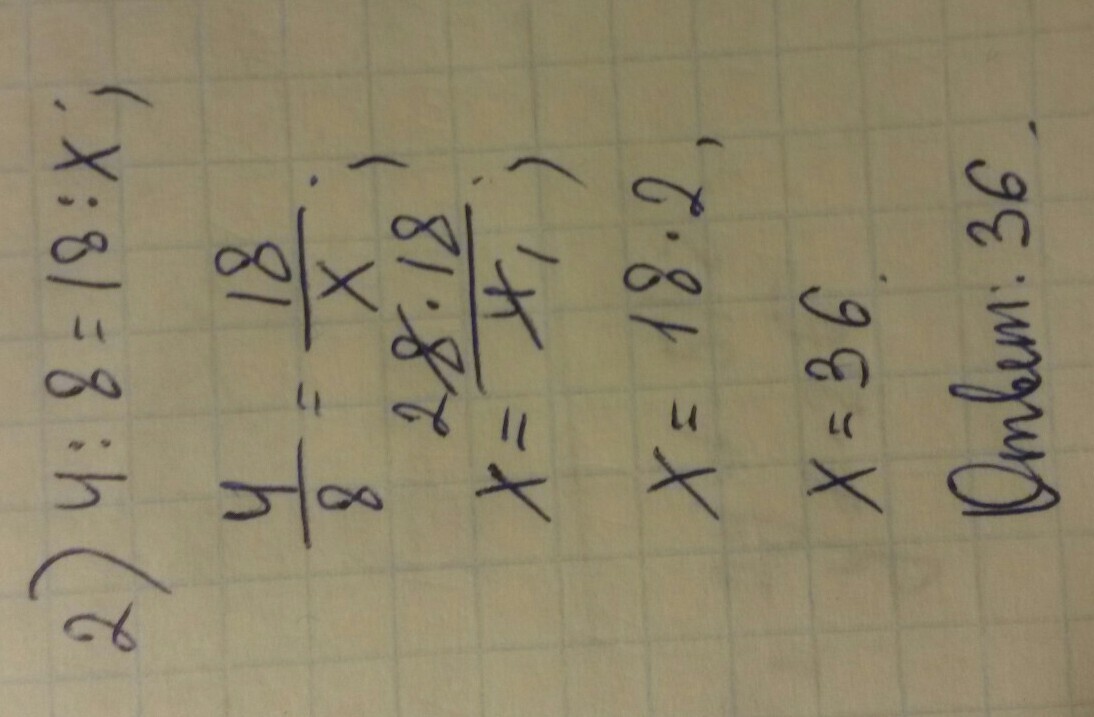 2) 4 : 8 = 18 : x ;
4/8 = 18/x ;
x = 2 8 · 18 / 4 1 ;
x = 18 · 2 ,
x = 36 .
Ответ: 36 .